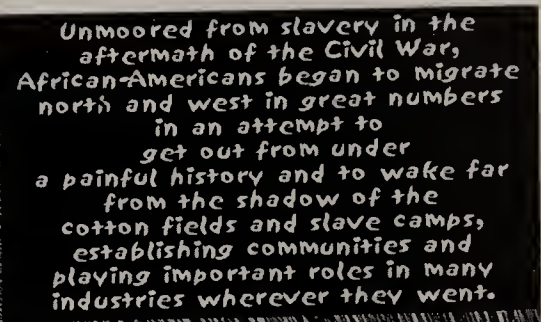 Unmoored from slavery in the
aftermath of the Civil War,
African-Americans began to migrate
north and west in great numbers
in an attempt to
get out from under
a painful history and to wake far
from the shadow of the
cotton fields and slave camps,
establishing communities and
playing important roles in many
industries wherever they went.